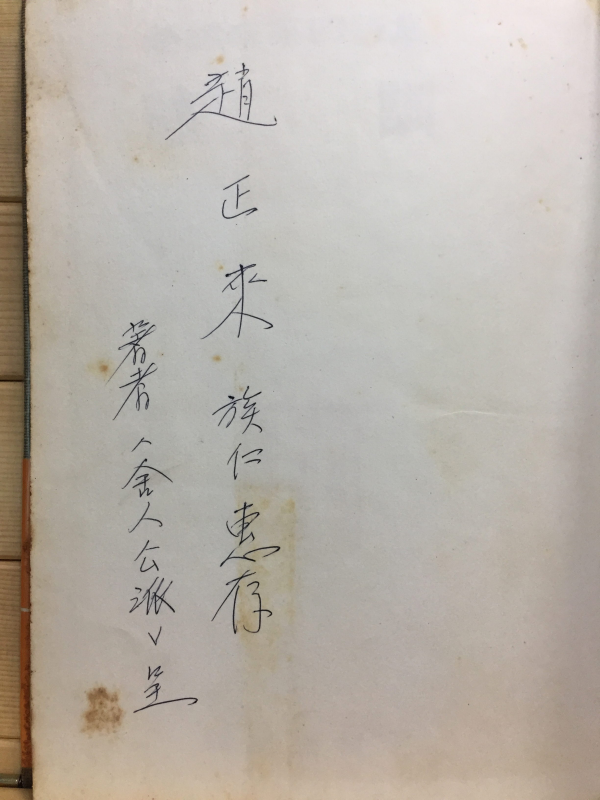 趙正來族仁惠存
著者(舍人公派)呈